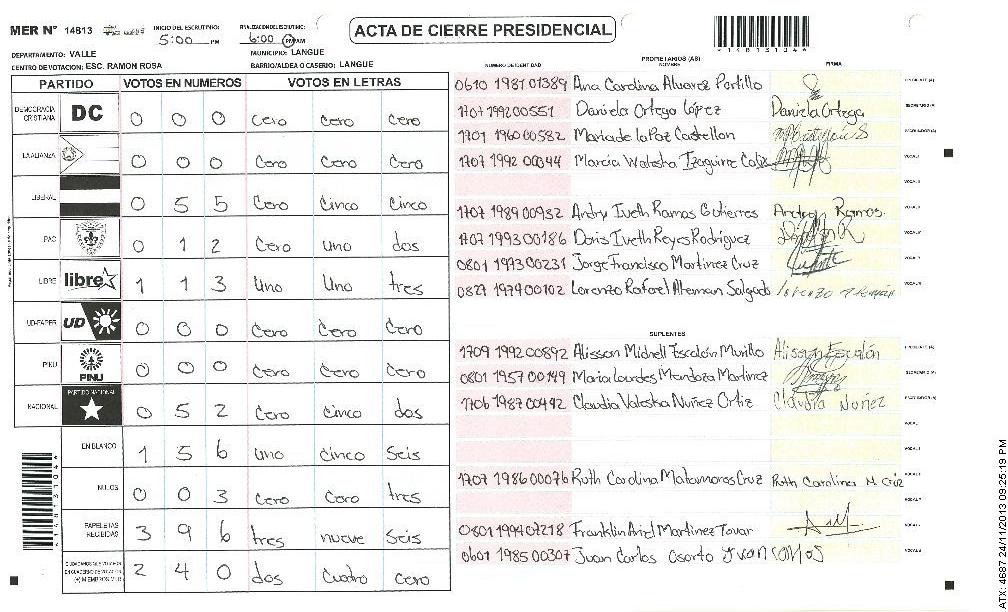 MER Nº 14813
INICIO DEL ESCRUTINIO: 5:00 PM
FINALIZACION DEL ESCRUTINIO: 6:00 PM AM
ACTA DE CIERRE PRESIDENCIAL
DEPARTAMENTO: VALLE
MUNICIPIO: LANGUE
CENTRO DE VOTACION: ESC. RAMON ROSA
BARRIO/ALDEA O CASERIO: LANGUE
PARTIDO VOTOS EN NUMEROS VOTOS EN LETRAS
DEMOCRACIA CRISTIANA DC 0 0 0 Cero Cero Cero
LA ALIANZA 0 0 0 Cero Cero Cero
LIBERAL 0 5 5 Cero Cinco Cinco
PAC 0 1 2 Cero uno dos
LIBRE libre 1 1 3 Uno Uno tres
UD-FAPER UD 0 0 0 Cero Cero Cero
PINU PINU 0 0 0 Cero Cero Cero
NACIONAL PARTIDO NACIONAL 0 5 2 Cero cinco dos
EN BLANCO 1 5 6 uno cinco Seis
NULOS 0 0 3 Cero Cero tres
PAPELETAS RECIBIDAS 3 9 6 tres nueve Seis
CIUDADANOS QUE VOTARON EN CUADERNO DE VOTACION (+) MIEMBROS MER 2 4 0 dos Cuatro Cero
PROPIETARIOS (AS)
NUMERO DE IDENTIDAD NOMBRE FIRMA
0610 1981 01389 Ana Carolina Alvarez Portillo PRESIDENTE (A)
1707 1992 00551 Daniela Ortega López Daniela Ortega SECRETARIO (A)
1701 1960 00582 Maria de la Paz Castellon ESCRUTADOR (A)
1707 1992 00044 Marcia Walesha Izaguirre Caliz VOCAL I
VOCAL II
1707 1989 00932 Andry Iveth Ramos Gutierres Ramos
1707 1993 00186 Doris Iveth Reyes Rodriguez
0801 1973 00231 Jorge Francisco Martinez Cruz
0827 1974 00102 Lorenzo Rafael Aleman Salgado Lorenzo
SUPLENTES
1709 1992 00892 Alisson Michell Escalón Murillo Alisson Escalón PRESIDENTE (A)
0801 1957 00149 Maria Lourdes Mendoza Martinez SECRETARIO (A)
1706 1987 00492 Claudia Valesha Nuñez Ortiz Claudia Nuñez ESCRUTADOR (A)
1707 1986 00076 Ruth Carolina Matamoros Cruz Ruth Carolina M Cruz
0801 1994 07218 Franklin Ariel Martinez Tovar
0601 1985 00307 Juan Carlos Osorto Juan Carlos
ATX: 4687 24/11/2013 09:25:19 PM